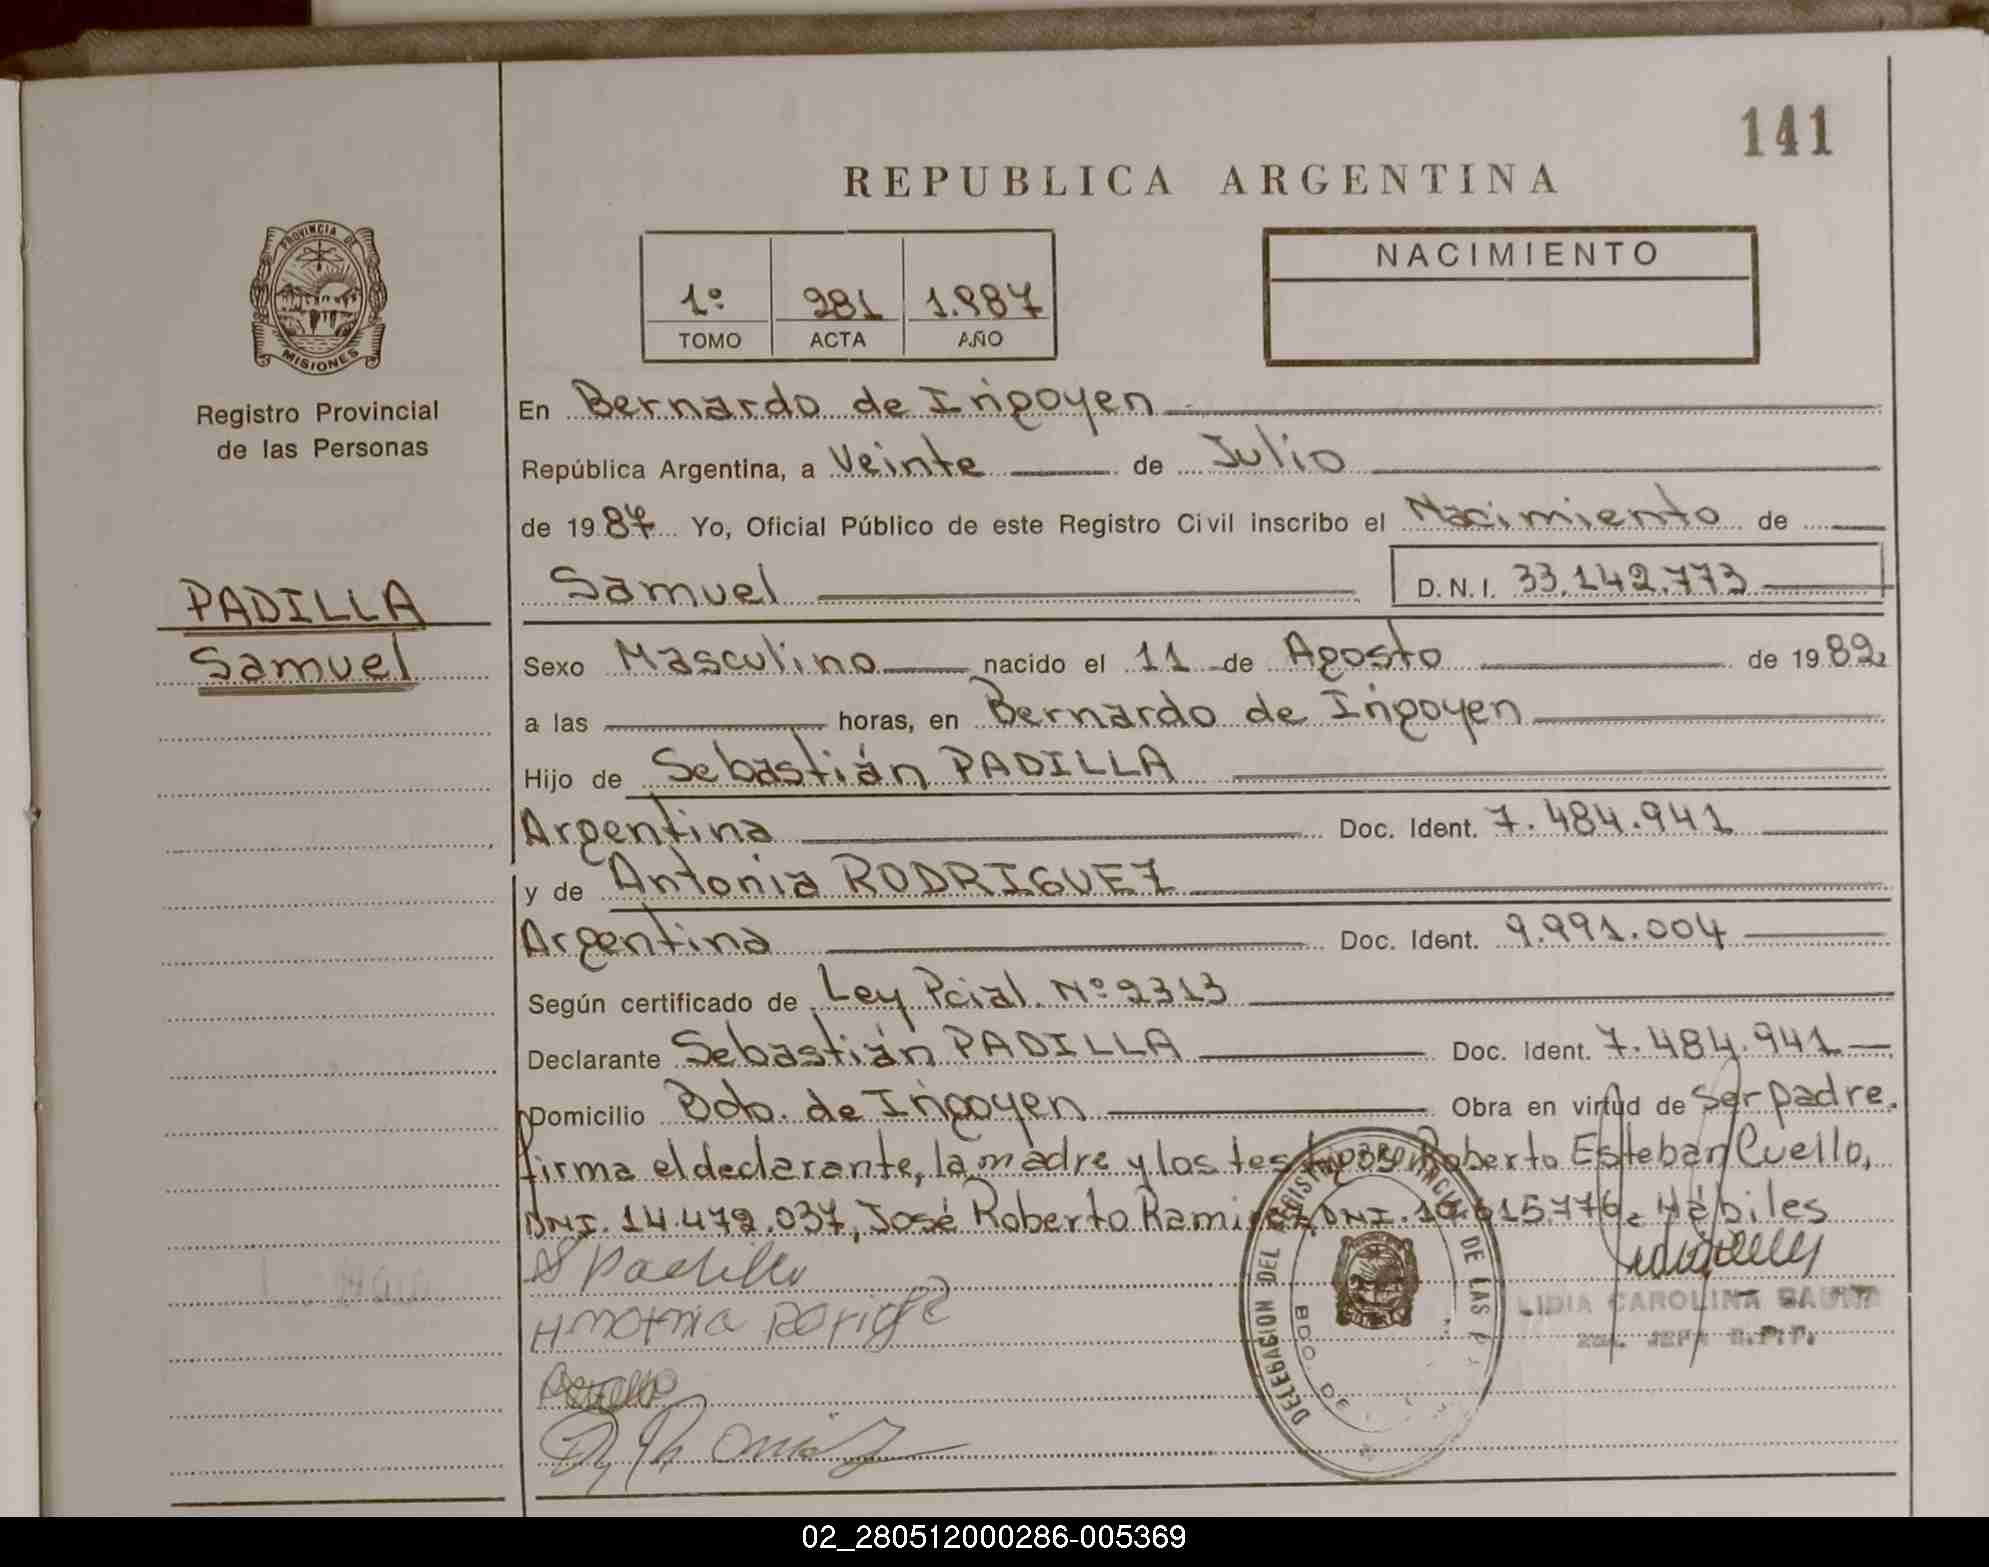 141
REPUBLICA ARGENTINA
PROVINCIA DE
MISIONES
Registro Provincial
de las Personas
1º 281 1.987
TOMO ACTA AÑO
NACIMIENTO
En Bernardo de Irigoyen
República Argentina, a Veinte de Julio
de 1987 Yo, Oficial Público de este Registro Civil inscribo el Nacimiento de
Samuel D.N.I. 33.142.773
PADILLA
Samuel
Sexo Masculino nacido el 11 de Agosto de 1982
a las horas, en Bernardo de Irigoyen
Hijo de Sebastián PADILLA
Argentina Doc. Ident. 7.484.941
y de Antonia RODRIGUEZ
Argentina Doc. Ident. 9.991.004
Según certificado de Ley Pcial. Nº 2313
Declarante Sebastián PADILLA Doc. Ident. 7.484.941
Domicilio Bdo. de Irigoyen Obra en virtud de Ser padre.
firma el declarante, la madre y los testigos Roberto Esteban Cuello,
DNI. 14.472.037, José Roberto Ramirez, DNI. Hábiles
S Padilla
DELEGACION DEL REGISTRO PROVINCIAL DE LAS
BDO. DE
LIDIA CAROLINA
JEFA R.P.P.
02_280512000286-005369